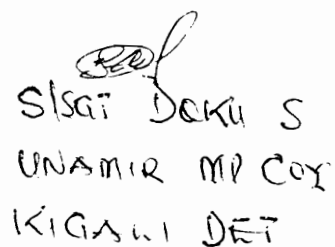 S/SGT DOKU S
UNAMIR MP COY
KIGALI DET